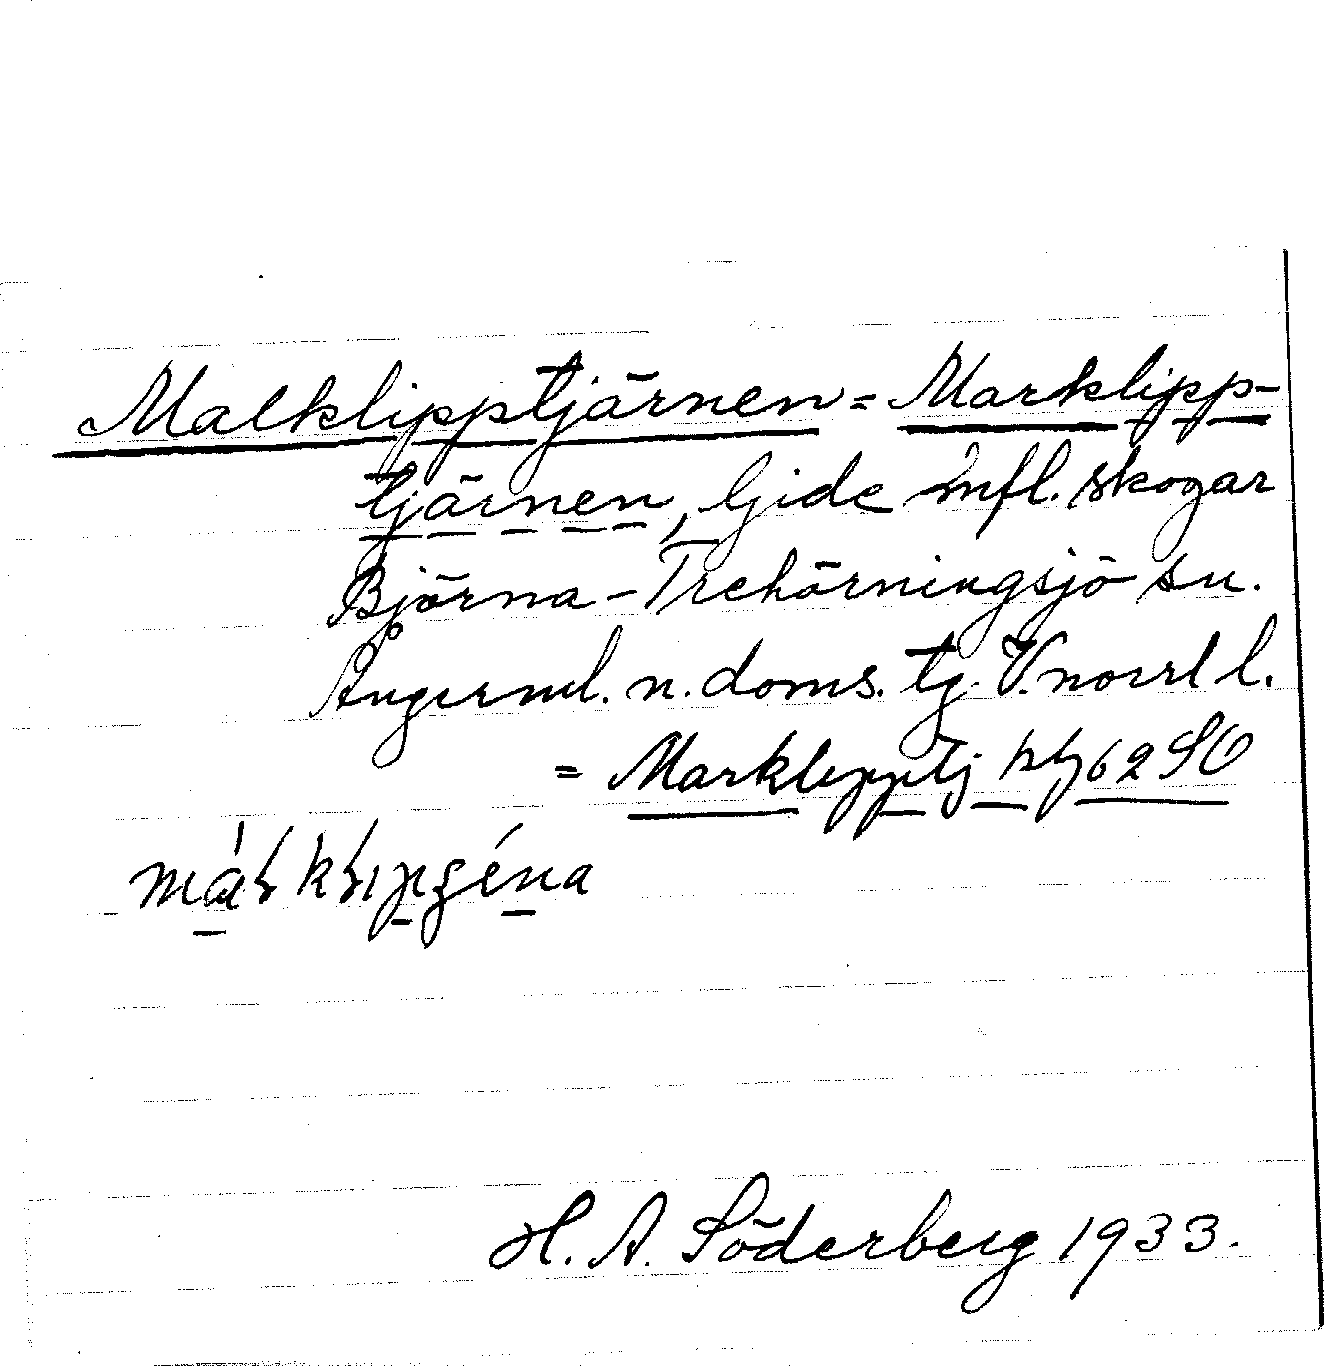 Malklipptjärnen = Marklipp-
tjärnen, Gide mfl. skogar
Björna - Trehörningsjö sn.
Ångerml. n. doms. tg. V.norrl l.
= Marklipptj hbl 62 SO
H. A. Söderberg 1933.